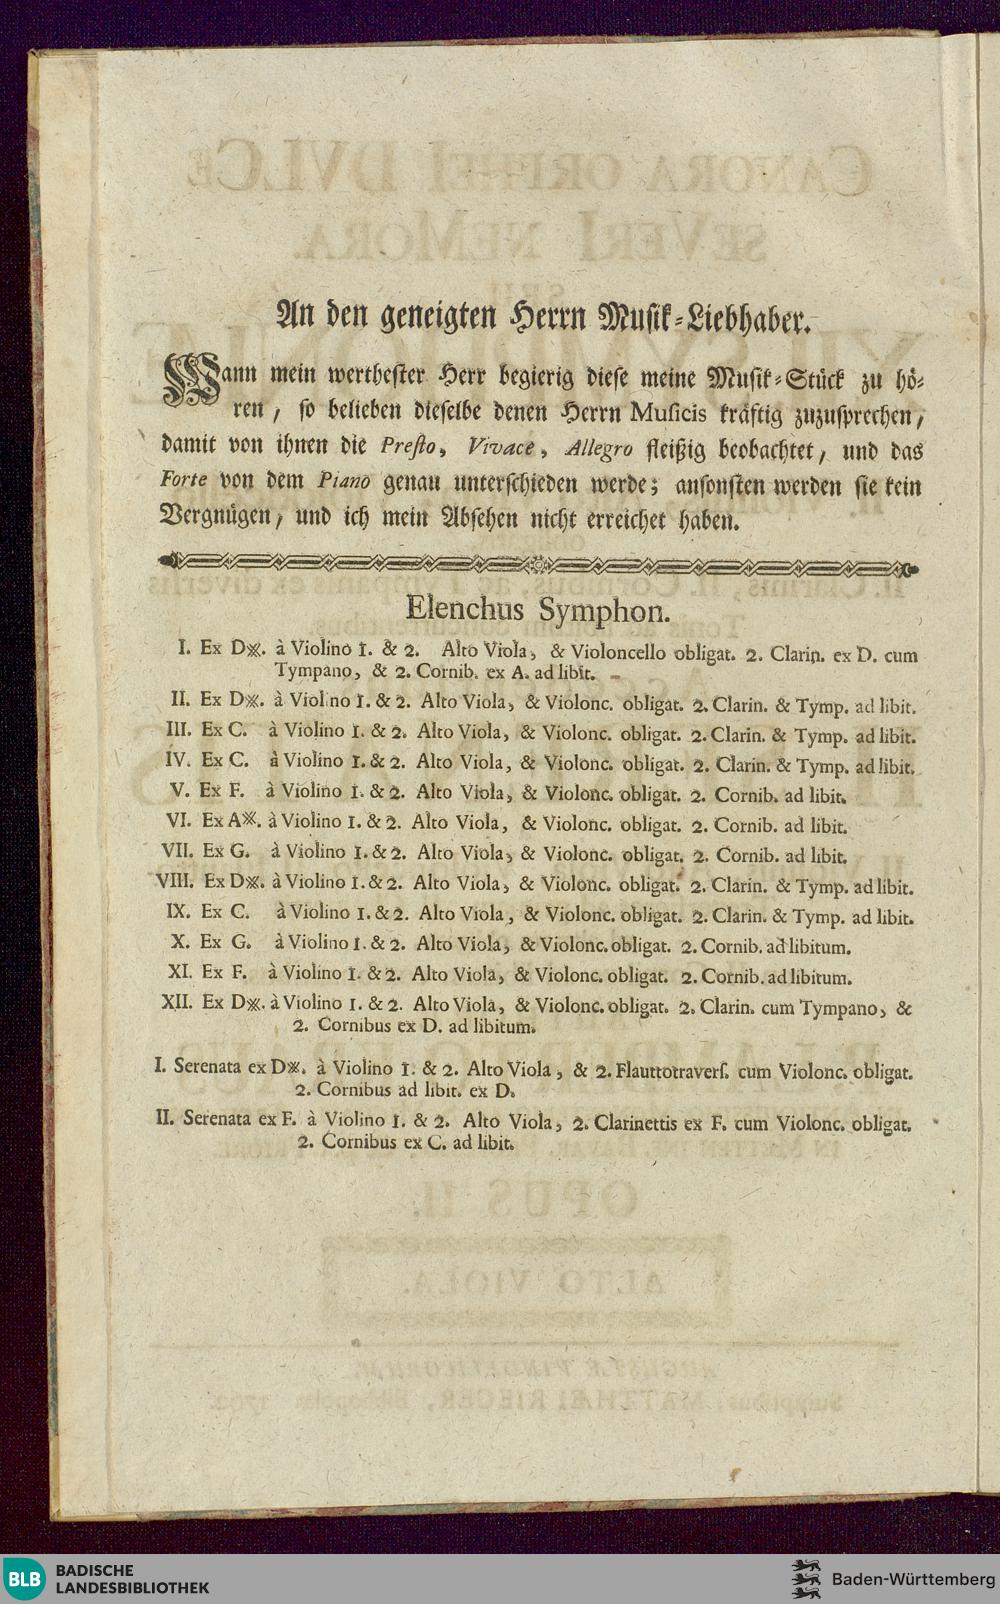 An den geneigten Herrn Musik-Liebhaber.
Wann mein werthester Herr begierig diese meine Musik-Stück zu hö-
ren, so belieben dieselbe denen Herrn Musicis kräftig zuzusprechen,
damit von ihnen die Presto, Vivace, Allegro fleißig beobachtet, und das
Forte von dem Piano genau unterschieden werde; ansonsten werden sie kein
Vergnügen, und ich mein Absehen nicht erreichet haben.
Elenchus Symphon.
I. Ex D※. à Violino 1. & 2. Alto Viola, & Violoncello obligat. 2. Clarin. ex D. cum
Tympano, & 2. Cornib. ex A. ad libit.
II. Ex D※. à Violino 1. & 2. Alto Viola, & Violonc. obligat. 2. Clarin. & Tymp. ad libit.
III. Ex C. à Violino 1. & 2. Alto Viola, & Violonc. obligat. 2. Clarin. & Tymp. ad libit.
IV. Ex C. à Violino 1. & 2. Alto Viola, & Violonc. obligat. 2. Clarin. & Tymp. ad libit.
V. Ex F. à Violino 1. & 2. Alto Viola, & Violonc. obligat. 2. Cornib. ad libit.
VI. Ex A※. à Violino 1. & 2. Alto Viola, & Violonc. obligat. 2. Cornib. ad libit.
VII. Ex G. à Violino 1. & 2. Alto Viola, & Violonc. obligat. 2. Cornib. ad libit.
VIII. Ex D※. à Violino 1. & 2. Alto Viola, & Violonc. obligat. 2. Clarin. & Tymp. ad libit.
IX. Ex C. à Violino 1. & 2. Alto Viola, & Violonc. obligat. 2. Clarin. & Tymp. ad libit.
X. Ex G. à Violino 1. & 2. Alto Viola, & Violonc. obligat. 2. Cornib. ad libitum.
XI. Ex F. à Violino 1. & 2. Alto Viola, & Violonc. obligat. 2. Cornib. ad libitum.
XII. Ex D※. à Violino 1. & 2. Alto Viola, & Violonc. obligat. 2. Clarin. cum Tympano, &
2. Cornibus ex D. ad libitum.
I. Serenata ex D※. à Violino 1. & 2. Alto Viola, & 2. Flauttotravers. cum Violonc. obligat.
2. Cornibus ad libit. ex D.
II. Serenata ex F. à Violino 1. & 2. Alto Viola, 2. Clarinettis ex F. cum Violonc. obligat.
2. Cornibus ex C. ad libit.
BLB BADISCHE
LANDESBIBLIOTHEK
Baden-Württemberg